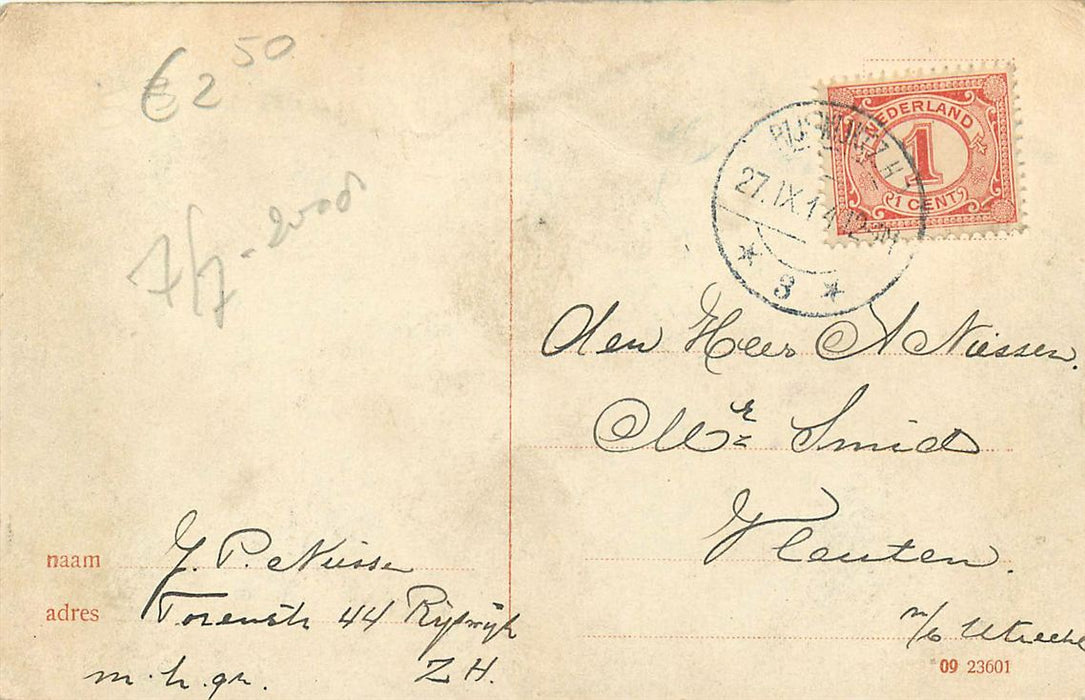 € 2 50
7/7-2001
NEDERLAND
1
1 CENT
RIJSWIJK Z.H.
27.IX.14.12
3
den Heer A Niessen.
Mr Smid
Vleuten.
n/b Utrecht
naam J. P. Niessen
adres Torenstr 44 Rijswijk
m.h.gr. Z H.
09 23601